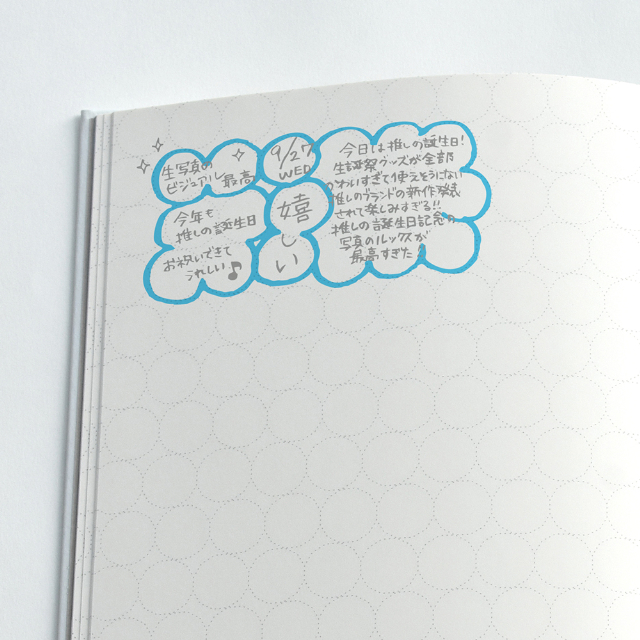 生写真の
ビジュアル最高
9/27
WED
今年も
推しの誕生日
お祝いできて
うれしい♪
嬉しい
今日は推しの誕生日！
生誕祭グッズが全部
かわいすぎて使えそうにない
推しのブランドの新作発表
されて楽しみすぎる!!
推しの誕生日記念の
写真のルックスが
最高すぎた！